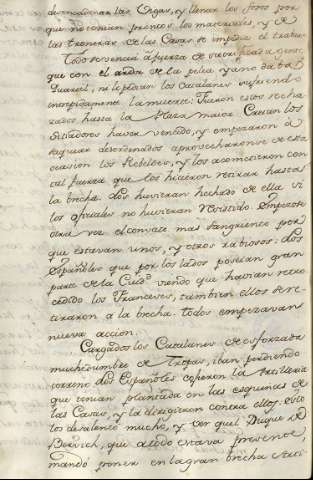 desencadenar las Vigas, y llenar los fosos por
que no tenian prontos los materiales, y de
las troneras de las Casas se impedia el trabajo
Todo se vencia a fuerza de sacrificada gente,
que con el ardor de la pelea ya no daba
Quartel, ni le pedian los Catalanes sufriendo
intrepidamente la muerte: Fueron estos recha
zados hasta la Plaza maior Creian los
Sitiadores haver vencido, y empezaron à
saquear desordenados aprovecharonse de esta
ocasion los Rebeldes, y los acometieron con
tal fuerza que los hicieron retirar hasta
la brecha. Los huvieran hechado de ella si
los oficiales no huvieran resistido Empezose
otra vez el convate mas sangriento por
que estavan unos, y otros rabiosos: Los
Españoles que por los lados poseían gran
parte de la Ciud.d viendo que havian retro
cedido los Franceses, tambien ellos se re-
tiraron a la brecha. Todo empezavan
nueva accion.
Cargados los Catalanes de esforzada
muchedumbre de Tropas, iban perdiendo
terreno: Los Españoles cojieron la Artilleria
que tenian plantada en las esquinas de
las Casas, y la dirigieron contra ellos. Esto
los desalentó mucho, y ver que el Duque de
Bervich, que a todo estava presente,
mandó poner en la gran brecha Arti-